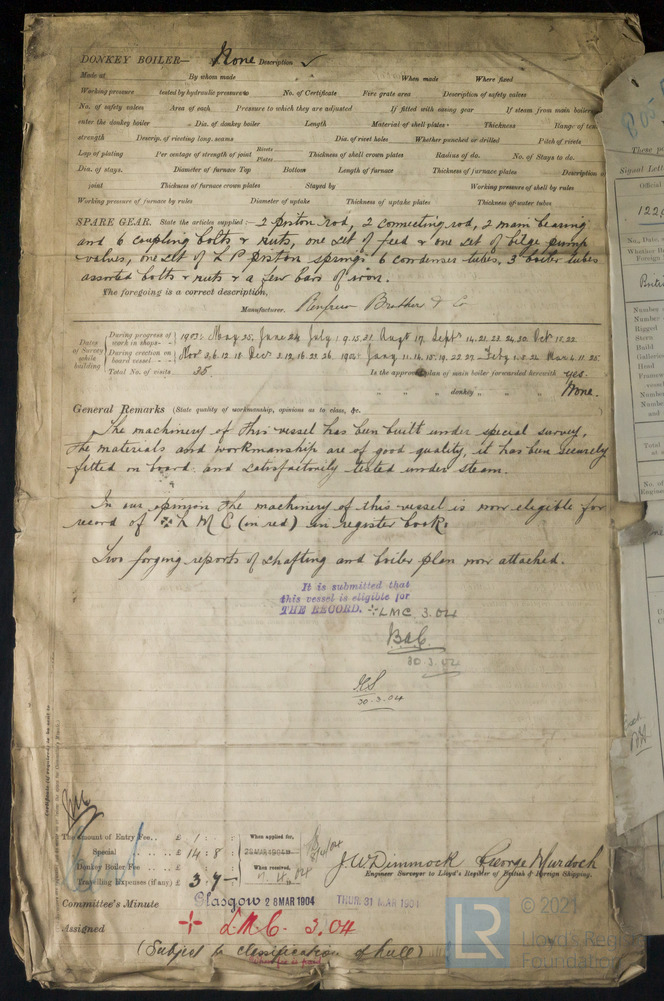 DONKEY BOILER— None Description ✓
Made at By whom made When made Where fixed
Working pressure tested by hydraulic pressure to No. of Certificate Fire grate area Description of safety valves
No. of safety valves Area of each Pressure to which they are adjusted If fitted with easing gear If steam from main boilers
enter the donkey boiler Dia. of donkey boiler Length Material of shell plates Thickness Range of ten
strength Descrip. of riveting long. seams Dia. of rivet holes Whether punched or drilled Pitch of rivets
Lap of plating Per centage of strength of joint Rivets Plates Thickness of shell crown plates Radius of do. No. of Stays to do.
Dia. of stays. Diameter of furnace Top Bottom Length of furnace Thickness of furnace plates Description o
joint Thickness of furnace crown plates Stayed by Working pressure of shell by rules
Working pressure of furnace by rules Diameter of uptake Thickness of uptake plates Thickness of water tubes
SPARE GEAR. State the articles supplied:— 2 piston rod, 2 connecting rod, 2 main bearing
and 6 coupling bolts & nuts, one set of feed & one set of bilge pump
valves, one set of L P piston springs 6 condenser tubes, 3 boiler tubes
assorted bolts & nuts & a few bars of iron.
The foregoing is a correct description,
Manufacturer. Renfrew Brothers & Co
Dates of Survey while building
During progress of work in shops— 1903: May 25, June 24, July 1. 9. 15. 21. Augt 17. Septr 14. 21. 23. 24. 30. Oct 15. 22.
During erection on board vessel— Novr 3, 6. 12. 18. Decr 2. 12. 16. 22. 26. 1904: Jany 11. 14. 15. 19. 22. 27. Feby 1. 5. 24. Mar 4. 11. 25.
Total No. of visits 35. Is the approved plan of main boiler forwarded herewith yes.
" " " donkey " " " None.
General Remarks (State quality of workmanship, opinions as to class, &c.
The machinery of this vessel has been built under special survey,
the materials and workmanship are of good quality, it has been securely
fitted on board and satisfactorily tested under steam.
In our opinion the machinery of this vessel is now eligible for
record of ✠ L M C (in red) in register book.
Two forging reports of shafting and boiler plan now attached.
It is submitted that
this vessel is eligible for
THE RECORD. ✠ LMC 3.04
30.3.04
30.3.04
The amount of Entry Fee.. £ 1 : : When applied for,
Special .. .. .. £ 14 : 8 : 28 MAR 1904
Donkey Boiler Fee .. .. £ When received,
Travelling Expenses (if any) £ 3 . 7 –
J. W. Dimmock George Murdoch
Engineer Surveyor to Lloyd's Register of British & Foreign Shipping.
Committee's Minute Glasgow 28 MAR 1904 THUR 31 MAR 1904
Assigned + L.M.C. 3.04
(Subject to classification of hull)
These po
Signal Lett
Official
122
No., Date,
Whether B
Foreign
Number
Number
Rigged
Stern
Build
Galleries
Head
Number
Number
and
Total
No. of
Engin
LR
© 2021
Lloyd's Regis
Foundation